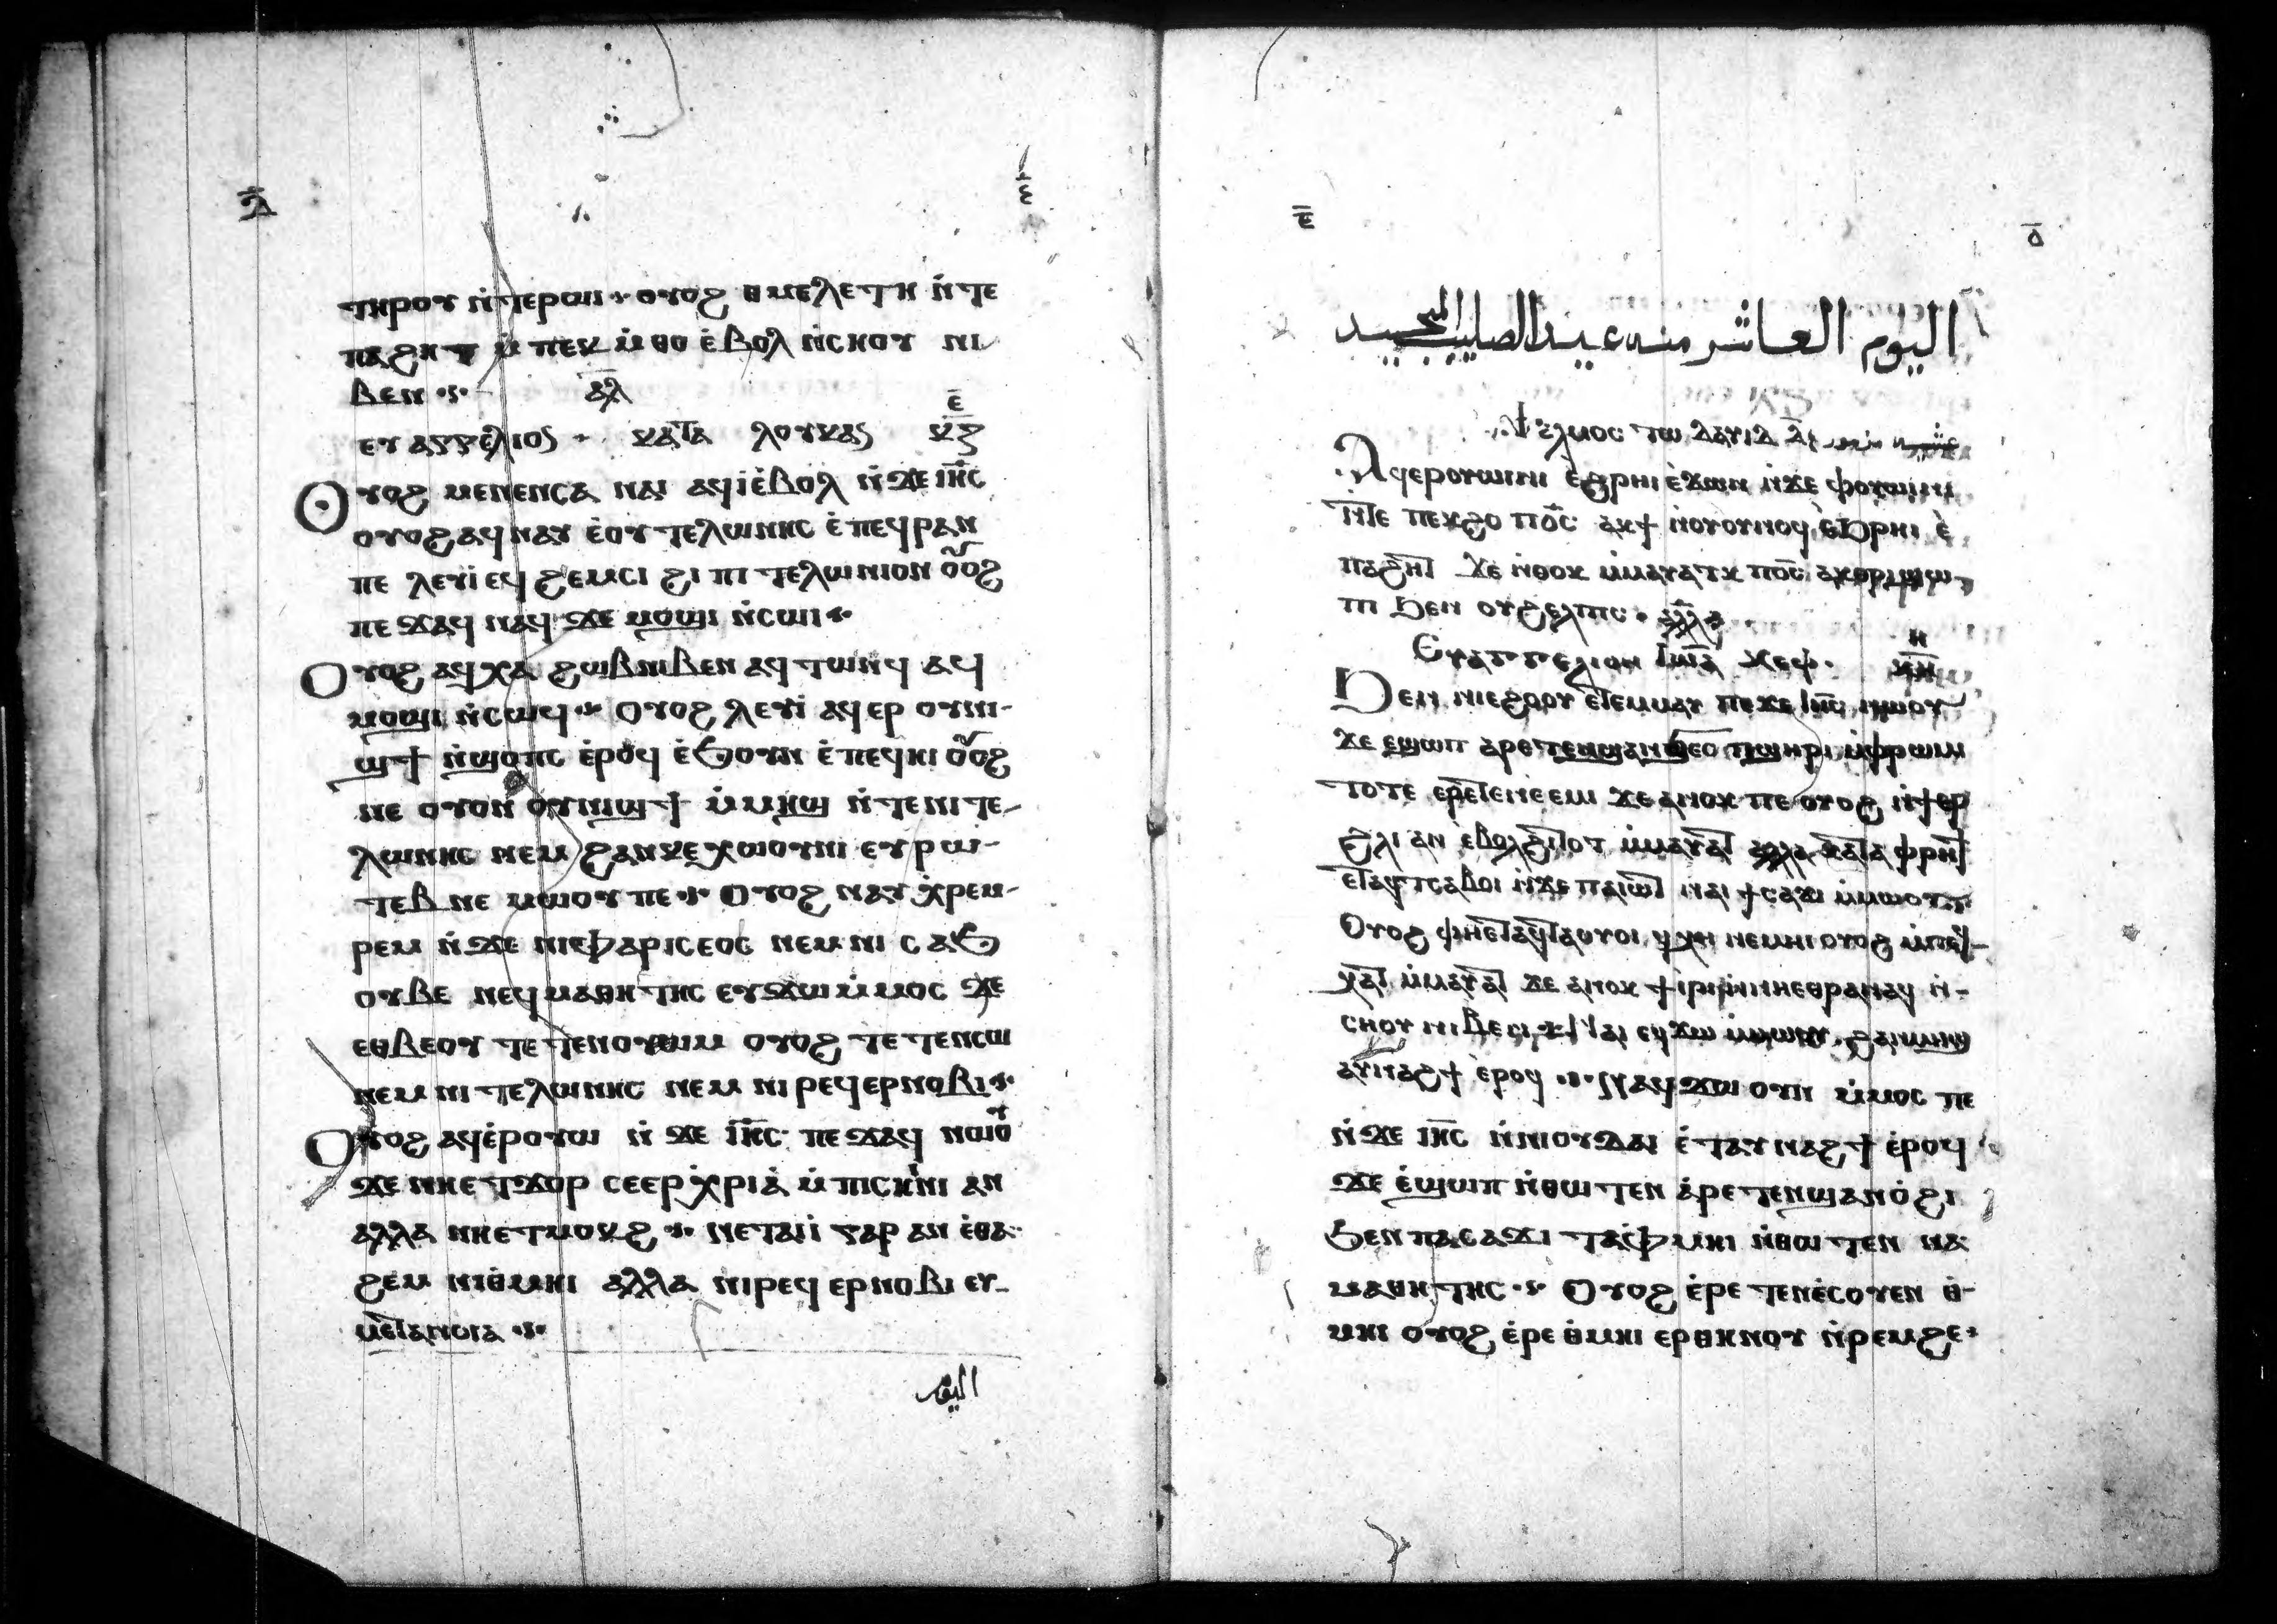 ⲇ̅
ⲧⲏⲣⲟⲩ ⲛ̀ⲧⲉⲣⲱⲓ ⲟⲩⲟϩ ⲑⲙⲉⲗⲉⲧⲏ ⲛ̀ⲧⲉ
ⲡⲁϩⲏⲧ ⲙ̀ⲡⲉⲕⲙ̀ⲑⲟ ⲉ̀ⲃⲟⲗ ⲛ̀ⲥⲏⲟⲩ ⲛⲓ
ⲃⲉⲛ ⲁ̅ⲗ̅
ⲉⲩⲁⲅⲅⲉⲗⲓⲟⲥ ⲕⲁⲧⲁ ⲗⲟⲩⲕⲁⲥ ⲉ̅ ⲕ̅ⲍ̅
Ⲟⲩⲟϩ ⲙⲉⲛⲉⲛⲥⲁ ⲛⲁⲓ ⲁϥⲓ̀ⲉ̀ⲃⲟⲗ ⲛ̀ϫⲉ ⲓⲏ̅ⲥ
ⲟⲩⲟϩ ⲁϥⲛⲁⲩ ⲉ̀ⲟⲩⲧⲉⲗⲱⲛⲏⲥ ⲉ̀ⲡⲉϥⲣⲁⲛ
ⲡⲉ ⲗⲉⲩⲓ̀ ⲉϥϩⲉⲙⲥⲓ ϩⲓ ⲡⲓⲧⲉⲗⲱⲛⲓⲟⲛ ⲟⲩⲟϩ
ⲡⲉϫⲁϥ ⲛⲁϥ ϫⲉ ⲙⲟϣⲓ ⲛ̀ⲥⲱⲓ
Ⲟⲩⲟϩ ⲁϥⲭⲁ ϩⲱⲃⲛⲓⲃⲉⲛ ⲁϥⲧⲱⲛϥ ⲁϥ
ⲙⲟϣⲓ ⲛ̀ⲥⲱϥ Ⲟⲩⲟϩ ⲗⲉⲩⲓ̀ ⲁϥⲉⲣ ⲟⲩⲛⲓ-
ϣϯ ⲛ̀ϣⲟⲡⲥ ⲉ̀ⲣⲟϥ ⲉ̀ϧⲟⲩⲛ ⲉ̀ⲡⲉϥⲏⲓ ⲟⲩⲟϩ
ⲛⲉ ⲟⲩⲟⲛ ⲟⲩⲛⲓϣϯ ⲙ̀ⲙⲏϣ ⲛ̀ⲧⲉⲛⲓⲧⲉ-
ⲗⲱⲛⲏⲥ ⲛⲉⲙ ϩⲁⲛⲕⲉⲭⲱⲟⲩⲛⲓ ⲉⲩⲣⲱ-
ⲧⲉⲃ ⲛⲉⲙⲱⲟⲩ ⲡⲉ Ⲟⲩⲟϩ ⲛⲁⲩⲭ̀ⲣⲉⲙ-
ⲣⲉⲙ ⲛ̀ϫⲉ ⲛⲓⲫⲁⲣⲓⲥⲉⲟⲥ ⲛⲉⲙ ⲛⲓⲥⲁϧ
ⲟⲩⲃⲉ ⲛⲉϥⲙⲁⲑⲏⲧⲏⲥ ⲉⲩϫⲱ ⲙ̀ⲙⲟⲥ ϫⲉ
ⲉⲑⲃⲉⲟⲩ ⲧⲉⲧⲉⲛⲟⲩⲱⲙ ⲟⲩⲟϩ ⲧⲉⲧⲉⲛⲥⲱ
ⲛⲉⲙ ⲛⲓⲧⲉⲗⲱⲛⲏⲥ ⲛⲉⲙ ⲛⲓⲣⲉϥⲉⲣⲛⲟⲃⲓ
Ⲟⲩⲟϩ ⲁϥⲉ̀ⲣⲟⲩⲱ ⲛ̀ϫⲉ ⲓⲏ̅ⲥ ⲡⲉϫⲁϥ ⲛⲱⲟⲩ
ϫⲉ ⲛⲏⲉⲧϫⲟⲣ ⲥⲉⲉⲣⲭ̀ⲣⲓⲁ̀ ⲙ̀ⲡⲓⲥⲏⲓⲛⲓ ⲁⲛ
ⲁⲗⲗⲁ ⲛⲏⲉⲧⲙⲟⲕϩ ⲛⲉⲧⲁⲓⲓ̀ ⲅⲁⲣ ⲁⲛ ⲉ̀ⲑⲁ-
ϩⲉⲙ ⲛⲓⲑ̀ⲙⲏⲓ ⲁⲗⲗⲁ ⲛⲓⲣⲉϥⲉⲣⲛⲟⲃⲓ ⲉⲩ-
ⲙⲉⲧⲁⲛⲟⲓⲁ
اليوم
ⲉ̅
اليوم العاشر منه عيد الصليب المجيد
Ⲯⲁⲗⲙⲟⲥ ⲧⲱ ⲇⲁⲩⲓⲇ
Ⲁϥⲉⲣⲟⲩⲱⲓⲛⲓ ⲉ̀ϩⲣⲏⲓ ⲉ̀ϫⲱⲛ ⲛ̀ϫⲉ ⲫⲟⲩⲱⲓⲛⲓ
ⲛ̀ⲧⲉ ⲡⲉⲕϩⲟ ⲡϭⲥ ⲁⲕϯ ⲛ̀ⲟⲩⲟⲩⲛⲟϥ ⲉ̀ϧⲣⲏⲓ ⲉ̀
ⲡⲁϩⲏⲧ ϫⲉ ⲛ̀ⲑⲟⲕ ⲙ̀ⲙⲁⲩⲁⲧⲕ ⲡϭⲥ ⲁⲕⲑⲣⲓϣⲱ-
ⲡⲓ ϧⲉⲛ ⲟⲩϩⲉⲗⲡⲓⲥ ⲁⲗⲗ
Ⲉⲩⲁⲅⲅⲉⲗⲓⲟⲛ ⲓⲱⲁ ⲕⲉⲫ ⲏ ⲕⲏ
Ϧⲉⲛ ⲛⲓⲉϩⲟⲟⲩ ⲉⲧⲉⲙⲙⲁⲩ ⲡⲉϫⲉ ⲓⲏ̅ⲥ ⲛⲱⲟⲩ
ϫⲉ ⲉϣⲱⲡ ⲁⲣⲉⲧⲉⲛϣⲁⲛϭⲉⲥ ⲡϣⲏⲣⲓ ⲙ̀ⲫⲣⲱⲙⲓ
ⲧⲟⲧⲉ ⲉⲣⲉⲧⲉⲛⲉⲉⲙⲓ ϫⲉ ⲁⲛⲟⲕ ⲡⲉ ⲟⲩⲟϩ ⲛ̀ϯⲉⲣ
ϩⲗⲓ ⲁⲛ ⲉ̀ⲃⲟⲗϩⲓⲧⲟⲧ ⲙ̀ⲙⲁⲩⲁⲧ ⲁⲗⲗⲁ ⲕⲁⲧⲁ ⲫⲣⲏϯ
ⲉⲧⲁϥⲧⲥⲁⲃⲟⲓ ⲛ̀ϫⲉ ⲡⲁⲓⲱⲧ ⲛⲁⲓ ϯⲥⲁϫⲓ ⲙ̀ⲙⲱⲟⲩ
Ⲟⲩⲟϩ ⲫⲏⲉⲧⲁϥⲧⲁⲟⲩⲟⲓ ϥⲭⲏ ⲛⲉⲙⲏⲓ ⲟⲩⲟϩ ⲙ̀ⲡⲉϥ-
ⲭⲁⲧ ⲙ̀ⲙⲁⲩⲁⲧ ϫⲉ ⲁⲛⲟⲕ ϯⲓⲣⲓ ⲛ̀ⲛⲏⲉⲑⲣⲁⲛⲁϥ ⲛ̀-
ⲥⲏⲟⲩ ⲛⲓⲃⲉⲛ Ⲛⲁⲓ ⲉϥϫⲱ ⲙ̀ⲙⲱⲟⲩ ϩⲁⲛⲙⲏϣ
ⲁⲩⲛⲁϩϯ ⲉ̀ⲣⲟϥ ⲛⲁϥϫⲱ ⲟⲩⲛ ⲙ̀ⲙⲟⲥ ⲡⲉ
ⲛ̀ϫⲉ ⲓⲏ̅ⲥ ⲛ̀ⲛⲓⲟⲩⲇⲁⲓ ⲉ̀ⲧⲁⲩⲛⲁϩϯ ⲉ̀ⲣⲟϥ
ϫⲉ ⲉ̀ϣⲱⲡ ⲛ̀ⲑⲱⲧⲉⲛ ⲁ̀ⲣⲉⲧⲉⲛϣⲁⲛⲟ̀ϩⲓ
ϧⲉⲛ ⲡⲁⲥⲁϫⲓ ⲧⲁⲫⲙⲏⲓ ⲛ̀ⲑⲱⲧⲉⲛ ⲛⲁ
ⲙⲁⲑⲏⲧⲏⲥ Ⲟⲩⲟϩ ⲉ̀ⲣⲉⲧⲉⲛⲉ̀ⲥⲟⲩⲉⲛ ⲑ̀-
ⲙⲏⲓ ⲟⲩⲟϩ ⲉ̀ⲣⲉ ⲑ̀ⲙⲏⲓ ⲉⲣⲑⲏⲛⲟⲩ ⲛ̀ⲣⲉⲙϩⲉ